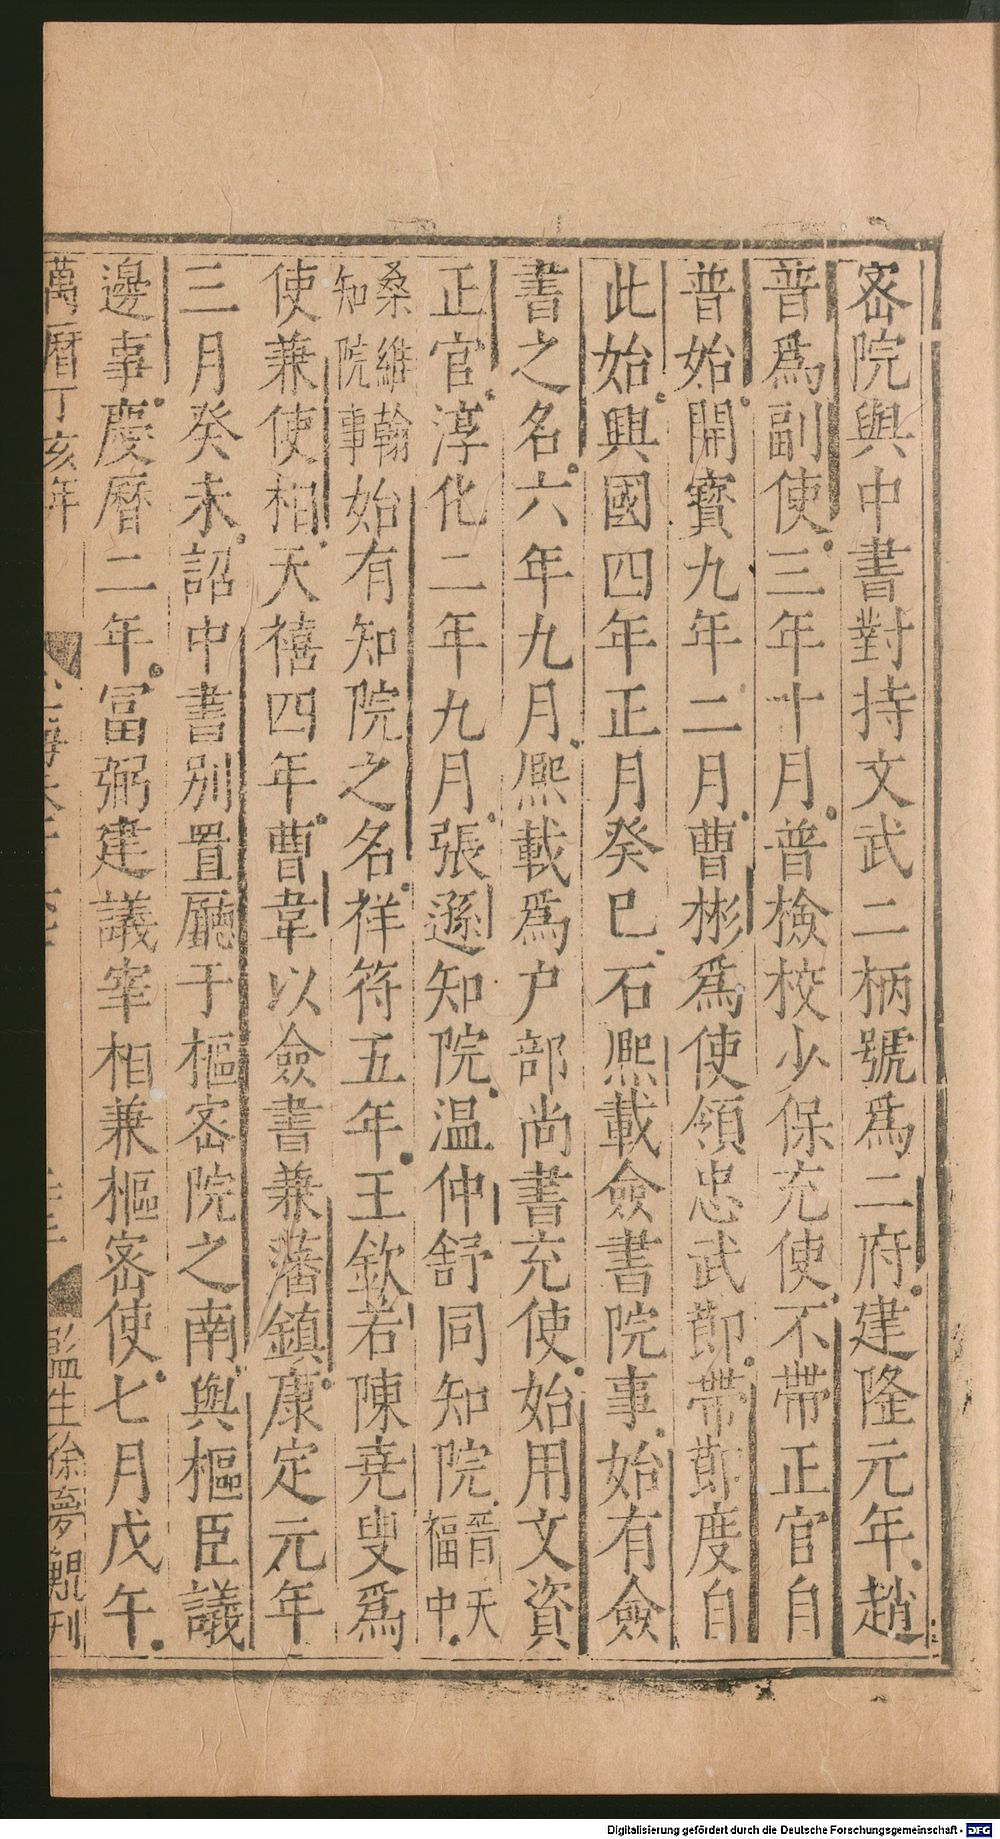 密院與中書對持文武二柄號爲二府建隆元年趙
普爲副使三年十月普檢校少保充使不帶正官自
普始開寶九年二月曹彬爲使領忠武節帶節度自
此始興國四年正月癸巳石熙載僉書院事始有僉
書之名六年九月熙載爲户部尚書充使始用文資
正官淳化二年九月張遜知院温仲舒同知院晉天福中
桑維翰知院事始有知院之名祥符五年王欽若陳堯叟爲
使兼使相天禧四年曹韋以僉書兼藩鎮康定元年
三月癸未詔中書别置廳于樞密院之南與樞臣議
邊事慶曆二年冨弼建議宰相兼樞密使七月戊午
萬曆丁亥年
監生徐夢鵾刊
Digitalisierung gefördert durch die Deutsche Forschungsgemeinschaft - DFG